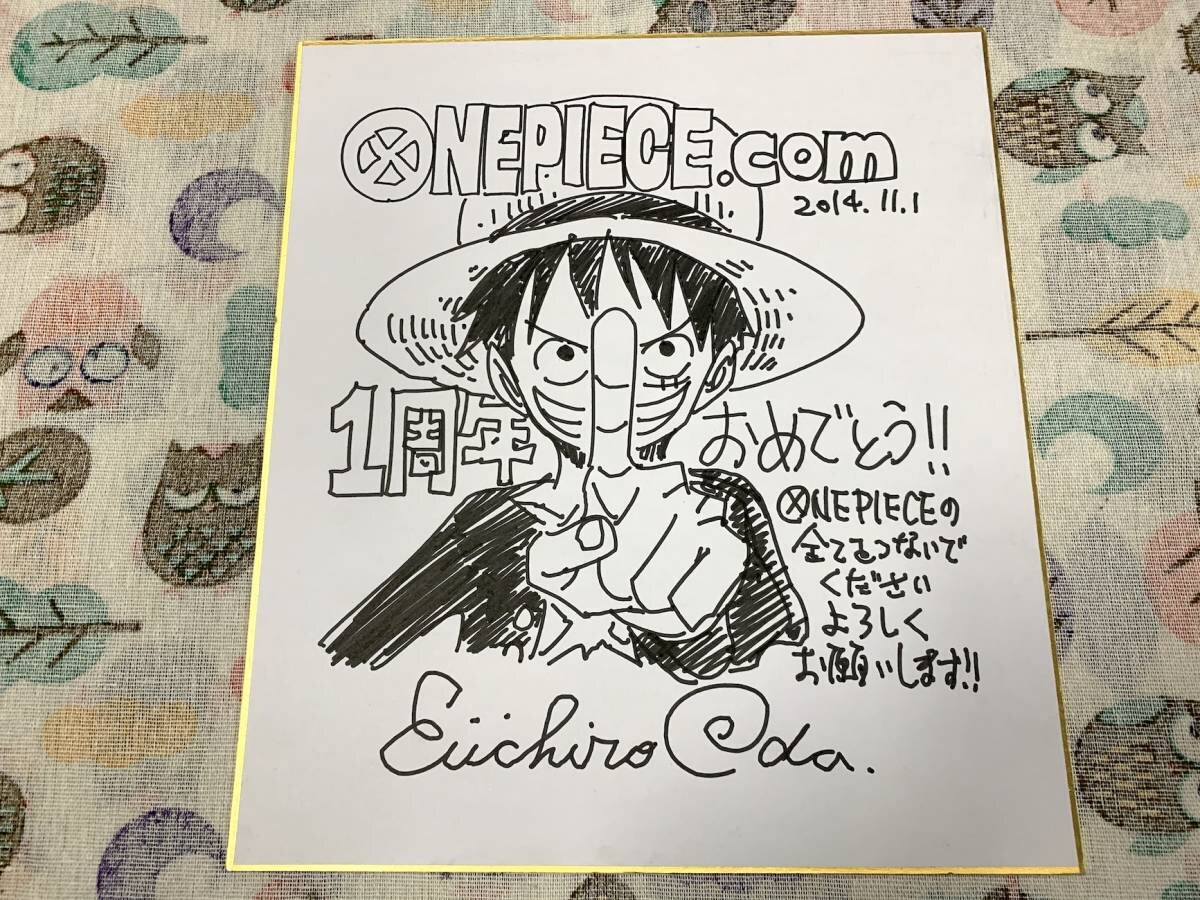 ONEPIECE.com
2014.11.1
1周年
おめでとう!!
ONEPIECEの
全てをつないで
ください
よろしく
お願いします!!
Eiichiro Oda.